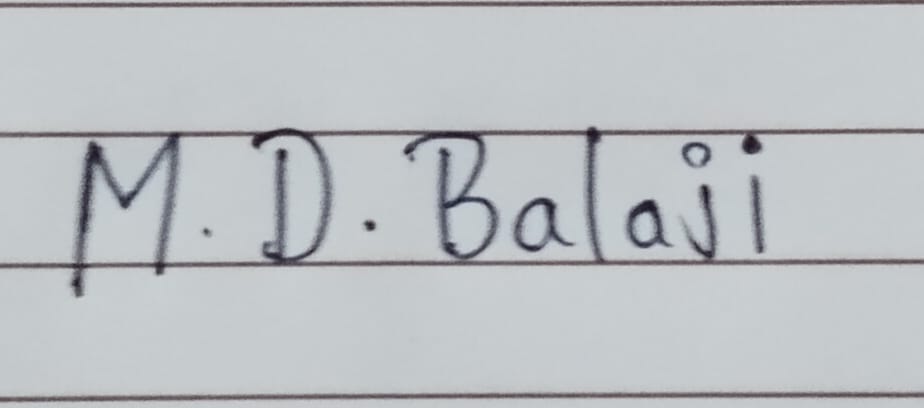 M. D. Balaji